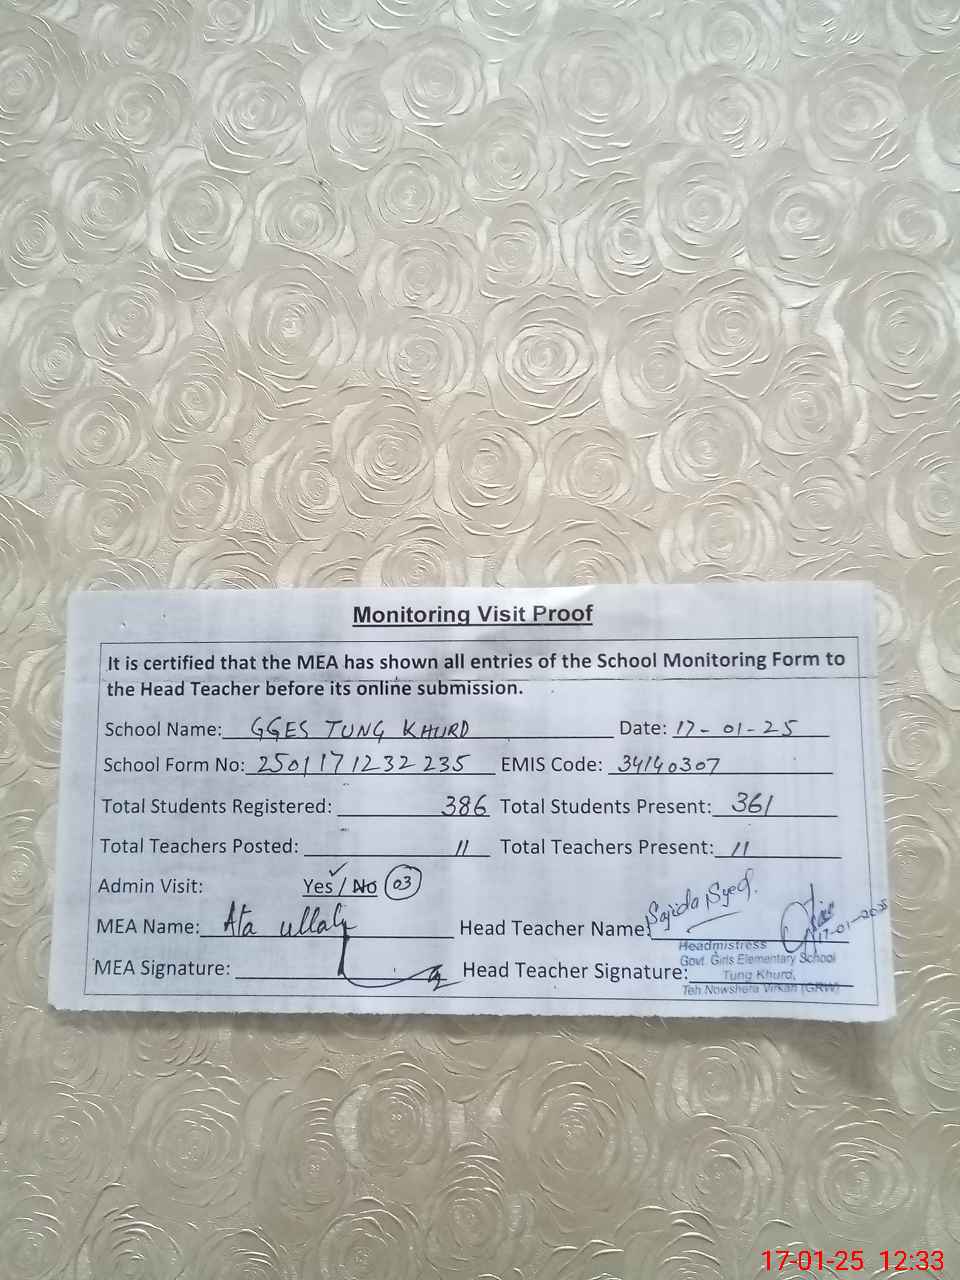 Monitoring Visit Proof
It is certified that the MEA has shown all entries of the School Monitoring Form to
the Head Teacher before its online submission.
School Name: GGES TUNG KHURD Date: 17-01-25
School Form No: 2501171232235 EMIS Code: 34140307
Total Students Registered: 386 Total Students Present: 361
Total Teachers Posted: 11 Total Teachers Present: 11
Admin Visit: Yes / No 03
MEA Name: Ata ullah Head Teacher Name: Sajida Syed.
17-01-2025
MEA Signature: Head Teacher Signature:
Headmistress
Govt. Girls Elementary School
Tung Khurd,
Teh Nowshera Virkan (GRW)
17-01-25 12:33